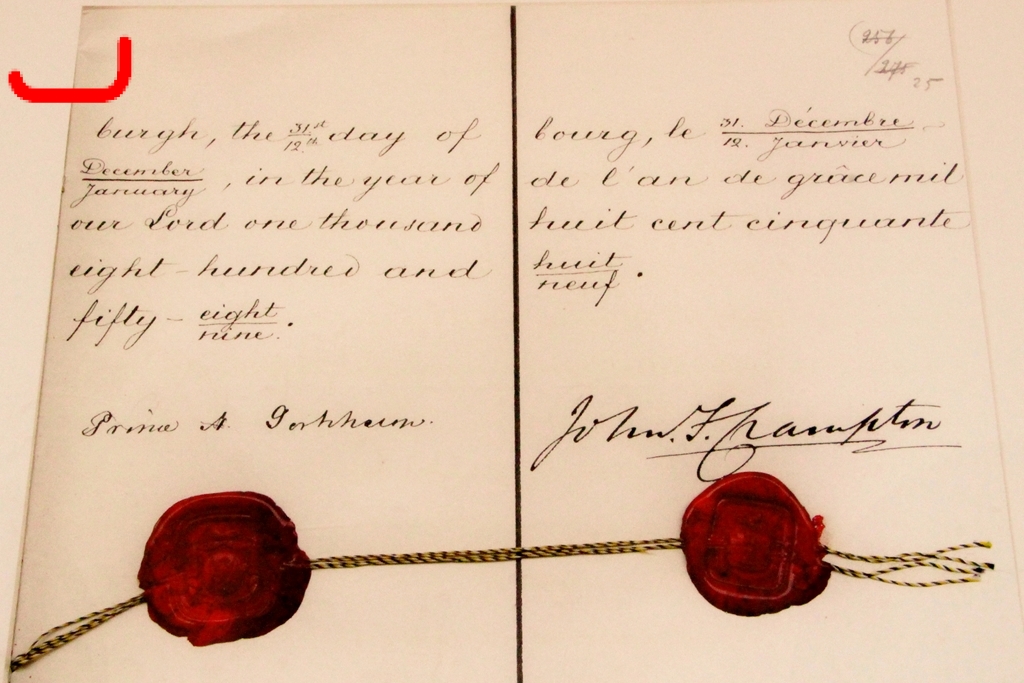 burgh, the 31.st/12.th day of
December/January, in the year of
our Lord one thousand
eight-hundred and
fifty-eight/nine.
Prince A. Gortchacow.
25
bourg, le 31. Décembre/12. Janvier
de l'an de grâce mil
huit cent cinquante
huit/neuf.
John. F. Crampton